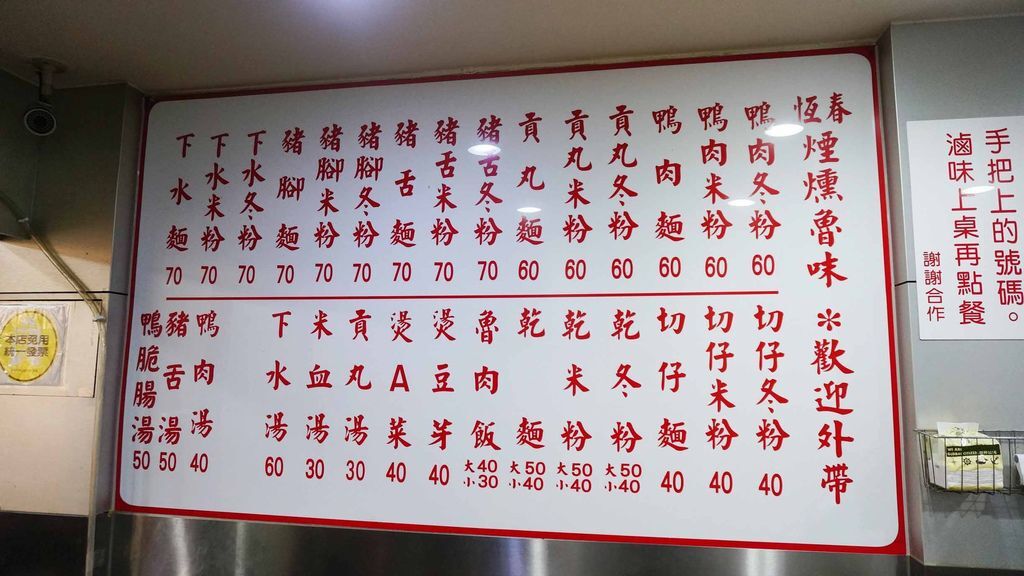 恆春煙燻魯味 *歡迎外帶
鴨肉冬粉 60
鴨肉米粉 60
鴨肉麵 60
貢丸冬粉 60
貢丸米粉 60
貢丸麵 60
豬舌冬粉 70
豬舌米粉 70
豬舌麵 70
豬腳冬粉 70
豬腳米粉 70
豬腳麵 70
下水冬粉 70
下水米粉 70
下水麵 70
切仔冬粉 40
切仔米粉 40
切仔麵 40
乾冬粉 大50 小40
乾米粉 大50 小40
乾麵 大50 小40
魯肉飯 大40 小30
燙豆芽 40
燙A菜 40
貢丸湯 30
米血湯 30
下水湯 60
鴨肉湯 40
豬舌湯 50
鴨脆腸湯 50
手把上的號碼。
滷味上桌再點餐
謝謝合作
本店免用
統一發票